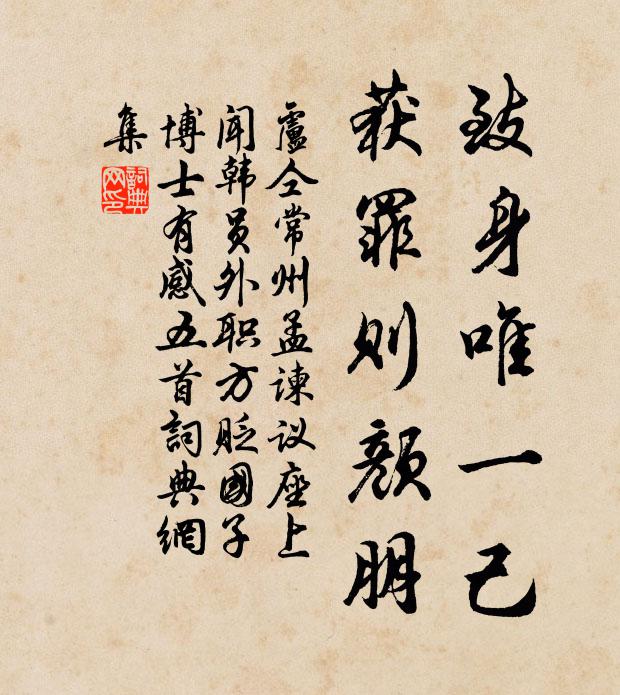 致身唯一己
获罪则颜朋
盧仝常州孟谏议座上
闻韩员外职方贬國子
博士有感五首詞典網
集
詞典
网印